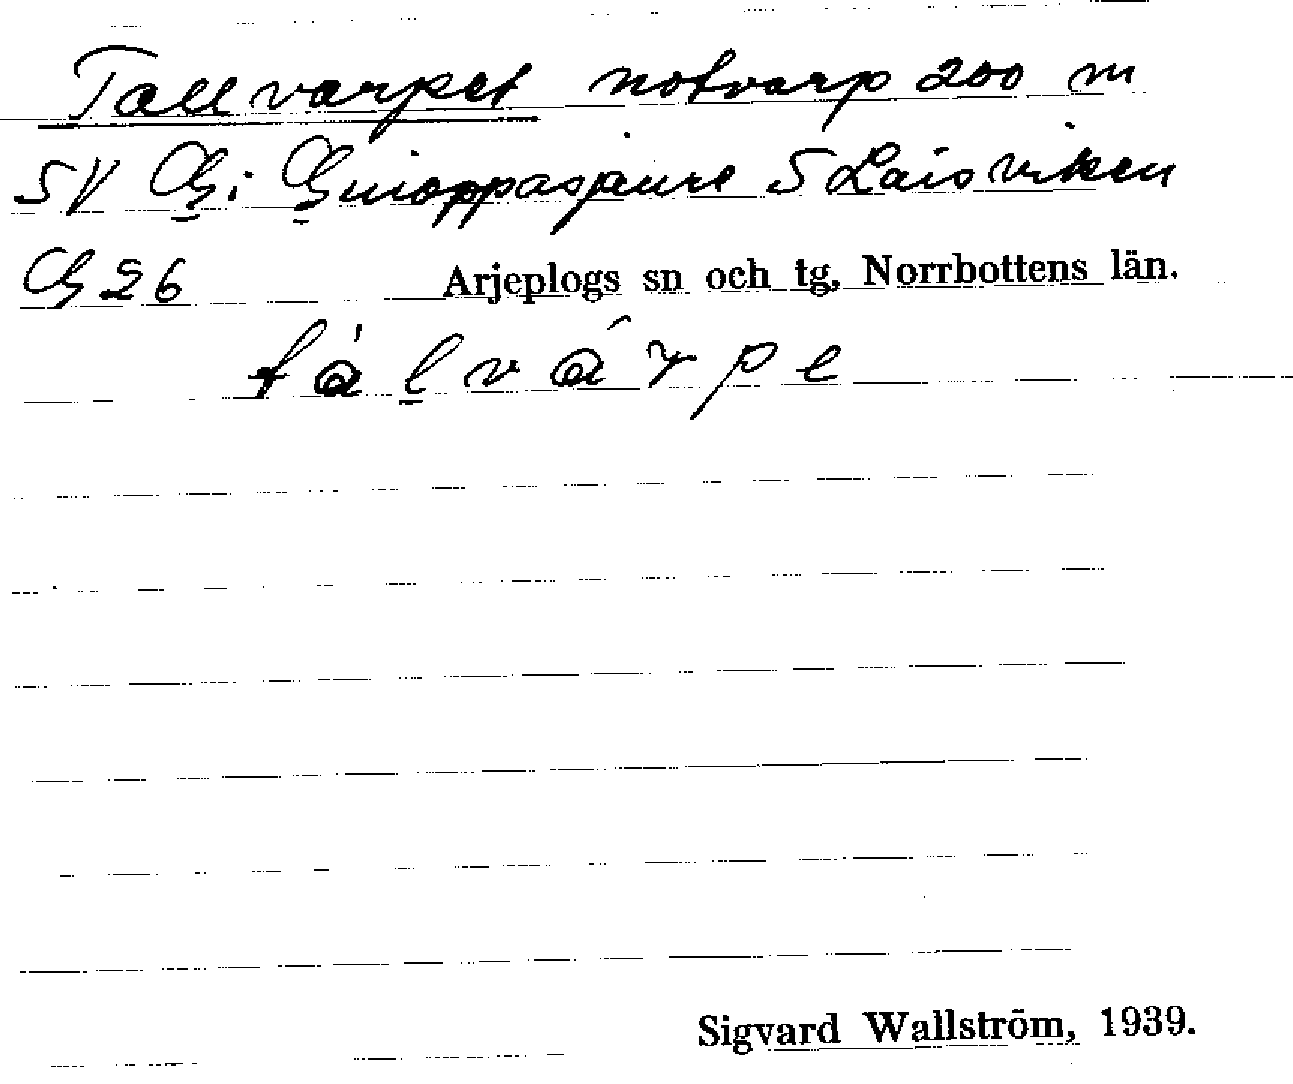 Tallvarpet notvarp 200 m
SV G i Guioppasjaure S Laisviken
G 26 Arjeplogs sn och tg, Norrbottens län.
tálvárpe
Sigvard Wallström, 1939.